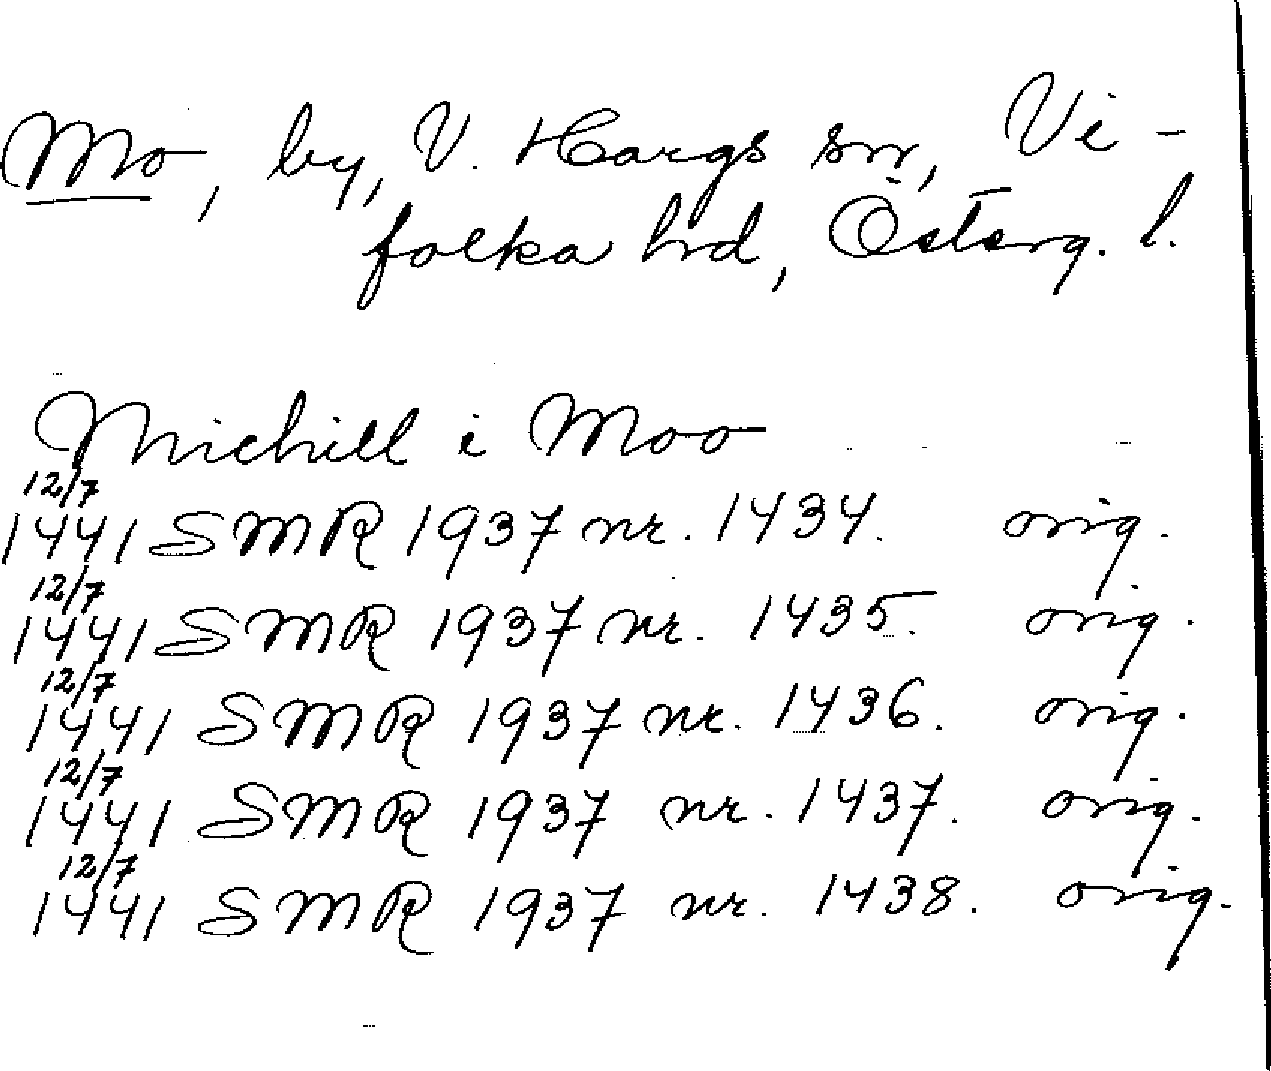 Mo, by, V. Hargs sn, Vi-
folka hrd, Österg. l.
Michill i Moo
12/7
1441 SMR 1937 nr. 1434. orig.
12/7
1441 SMR 1937 nr. 1435. orig.
12/7
1441 SMR 1937 nr. 1436. orig.
12/7
1441 SMR 1937 nr. 1437. orig.
12/7
1441 SMR 1937 nr. 1438. orig.